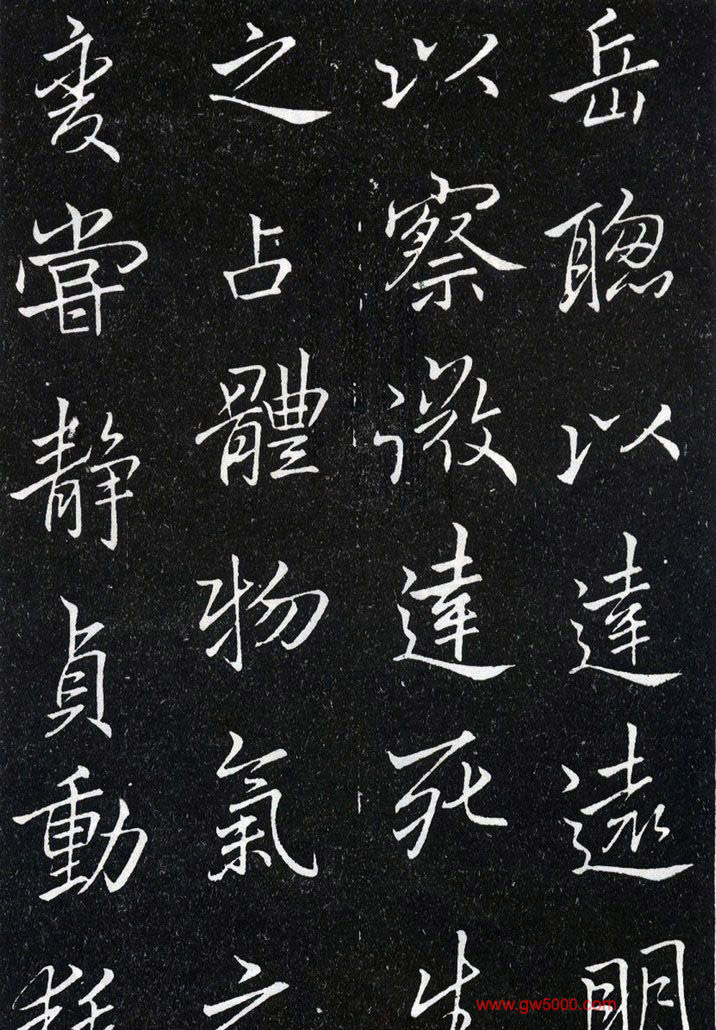 岳聰以達遠明
以察微達死生
之占體物氣之
變嘗静貞動
www.gw5000.com